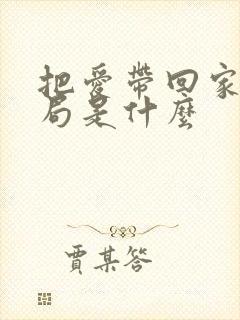 把愛帶回家
局是什麼
賈某答